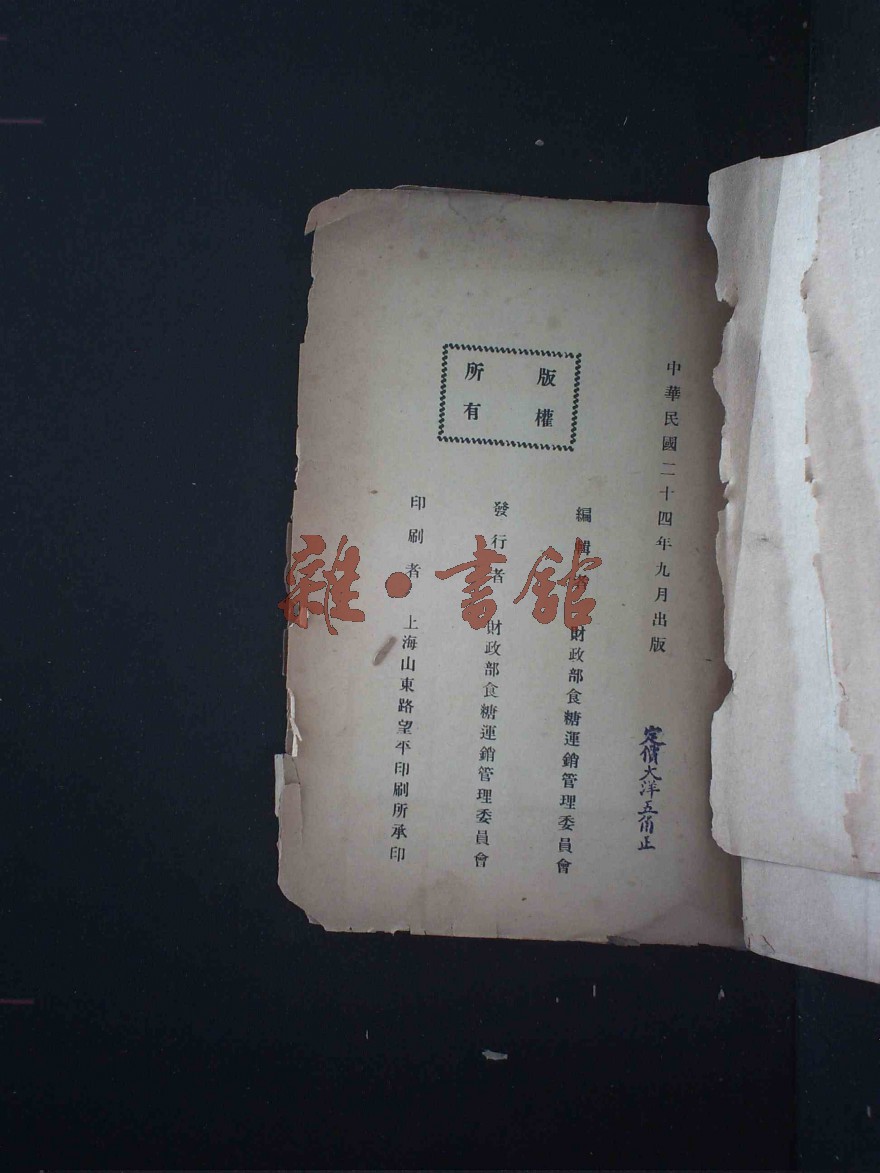 中華民國二十四年九月出版
定價大洋五角正
版權
所有
編輯者 財政部食糖運銷管理委員會
發行者 財政部食糖運銷管理委員會
印刷者 上海山東路望平印刷所承印
雜·書館